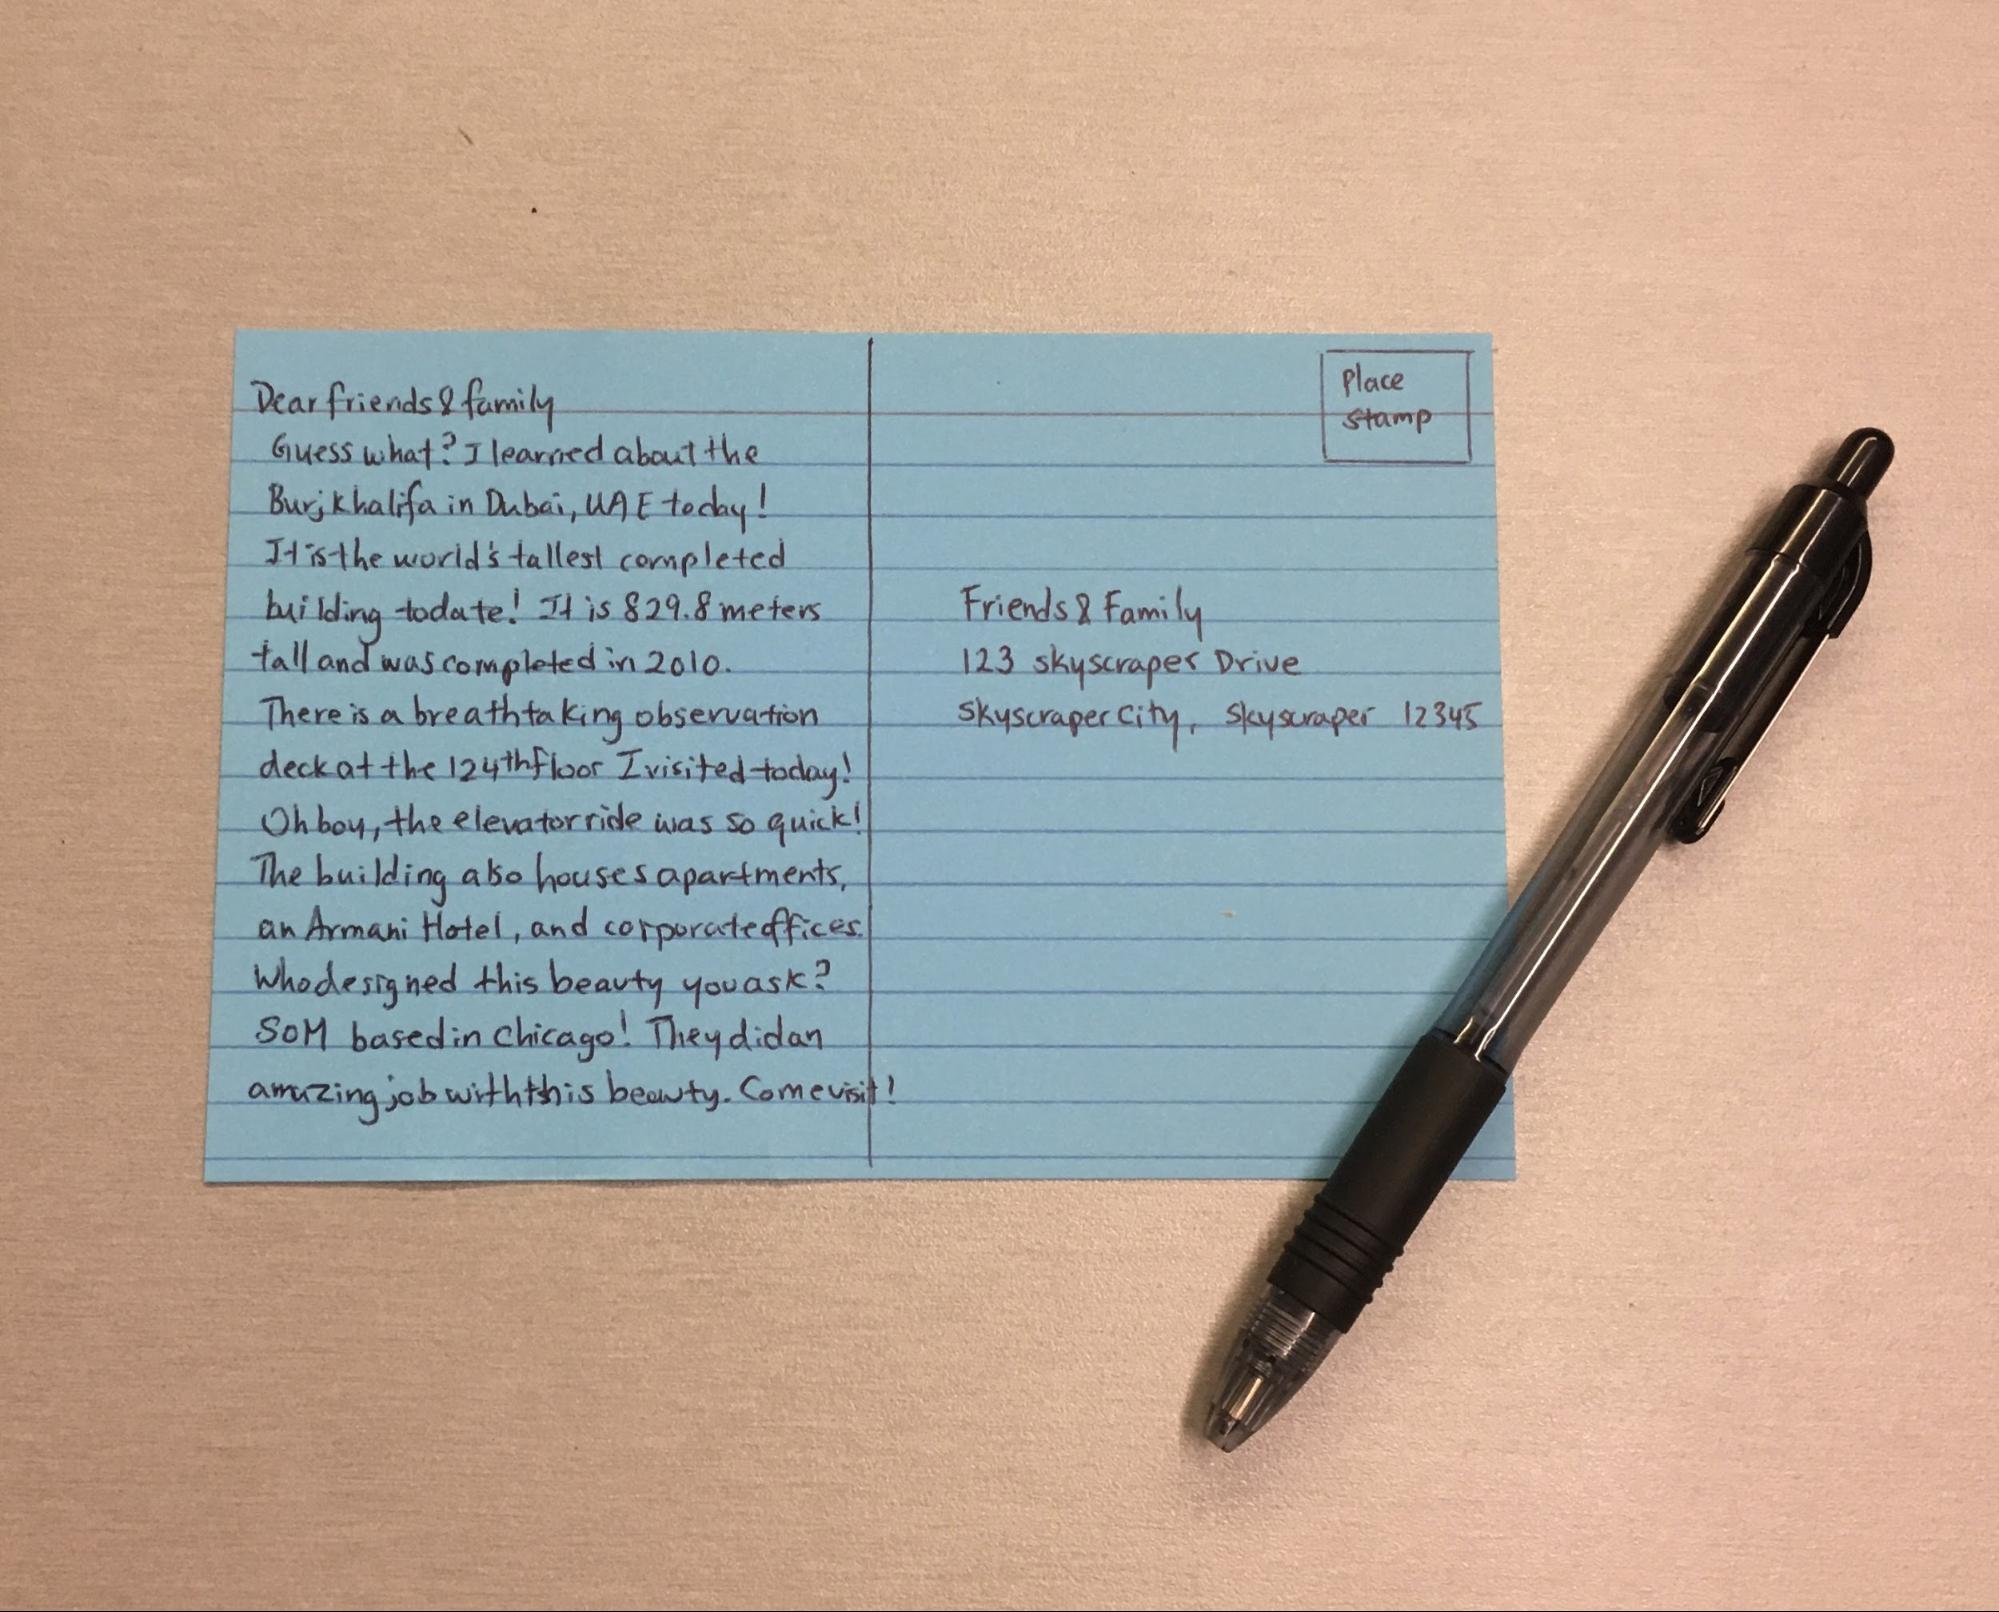 Dear friends & family
Guess what? I learned about the
Burj khalifa in Dubai, UAE today!
It is the world's tallest completed
building to date! It is 829.8 meters
tall and was completed in 2010.
There is a breathtaking observation
deck at the 124th floor I visited today!
Oh boy, the elevator ride was so quick!
The building also houses apartments,
an Armani Hotel, and corporate offices.
Who designed this beauty you ask?
SOM based in Chicago! They did an
amazing job with this beauty. Come visit!
Place
Stamp
Friends & Family
123 skyscraper Drive
Skyscraper City, Skyscraper 12345